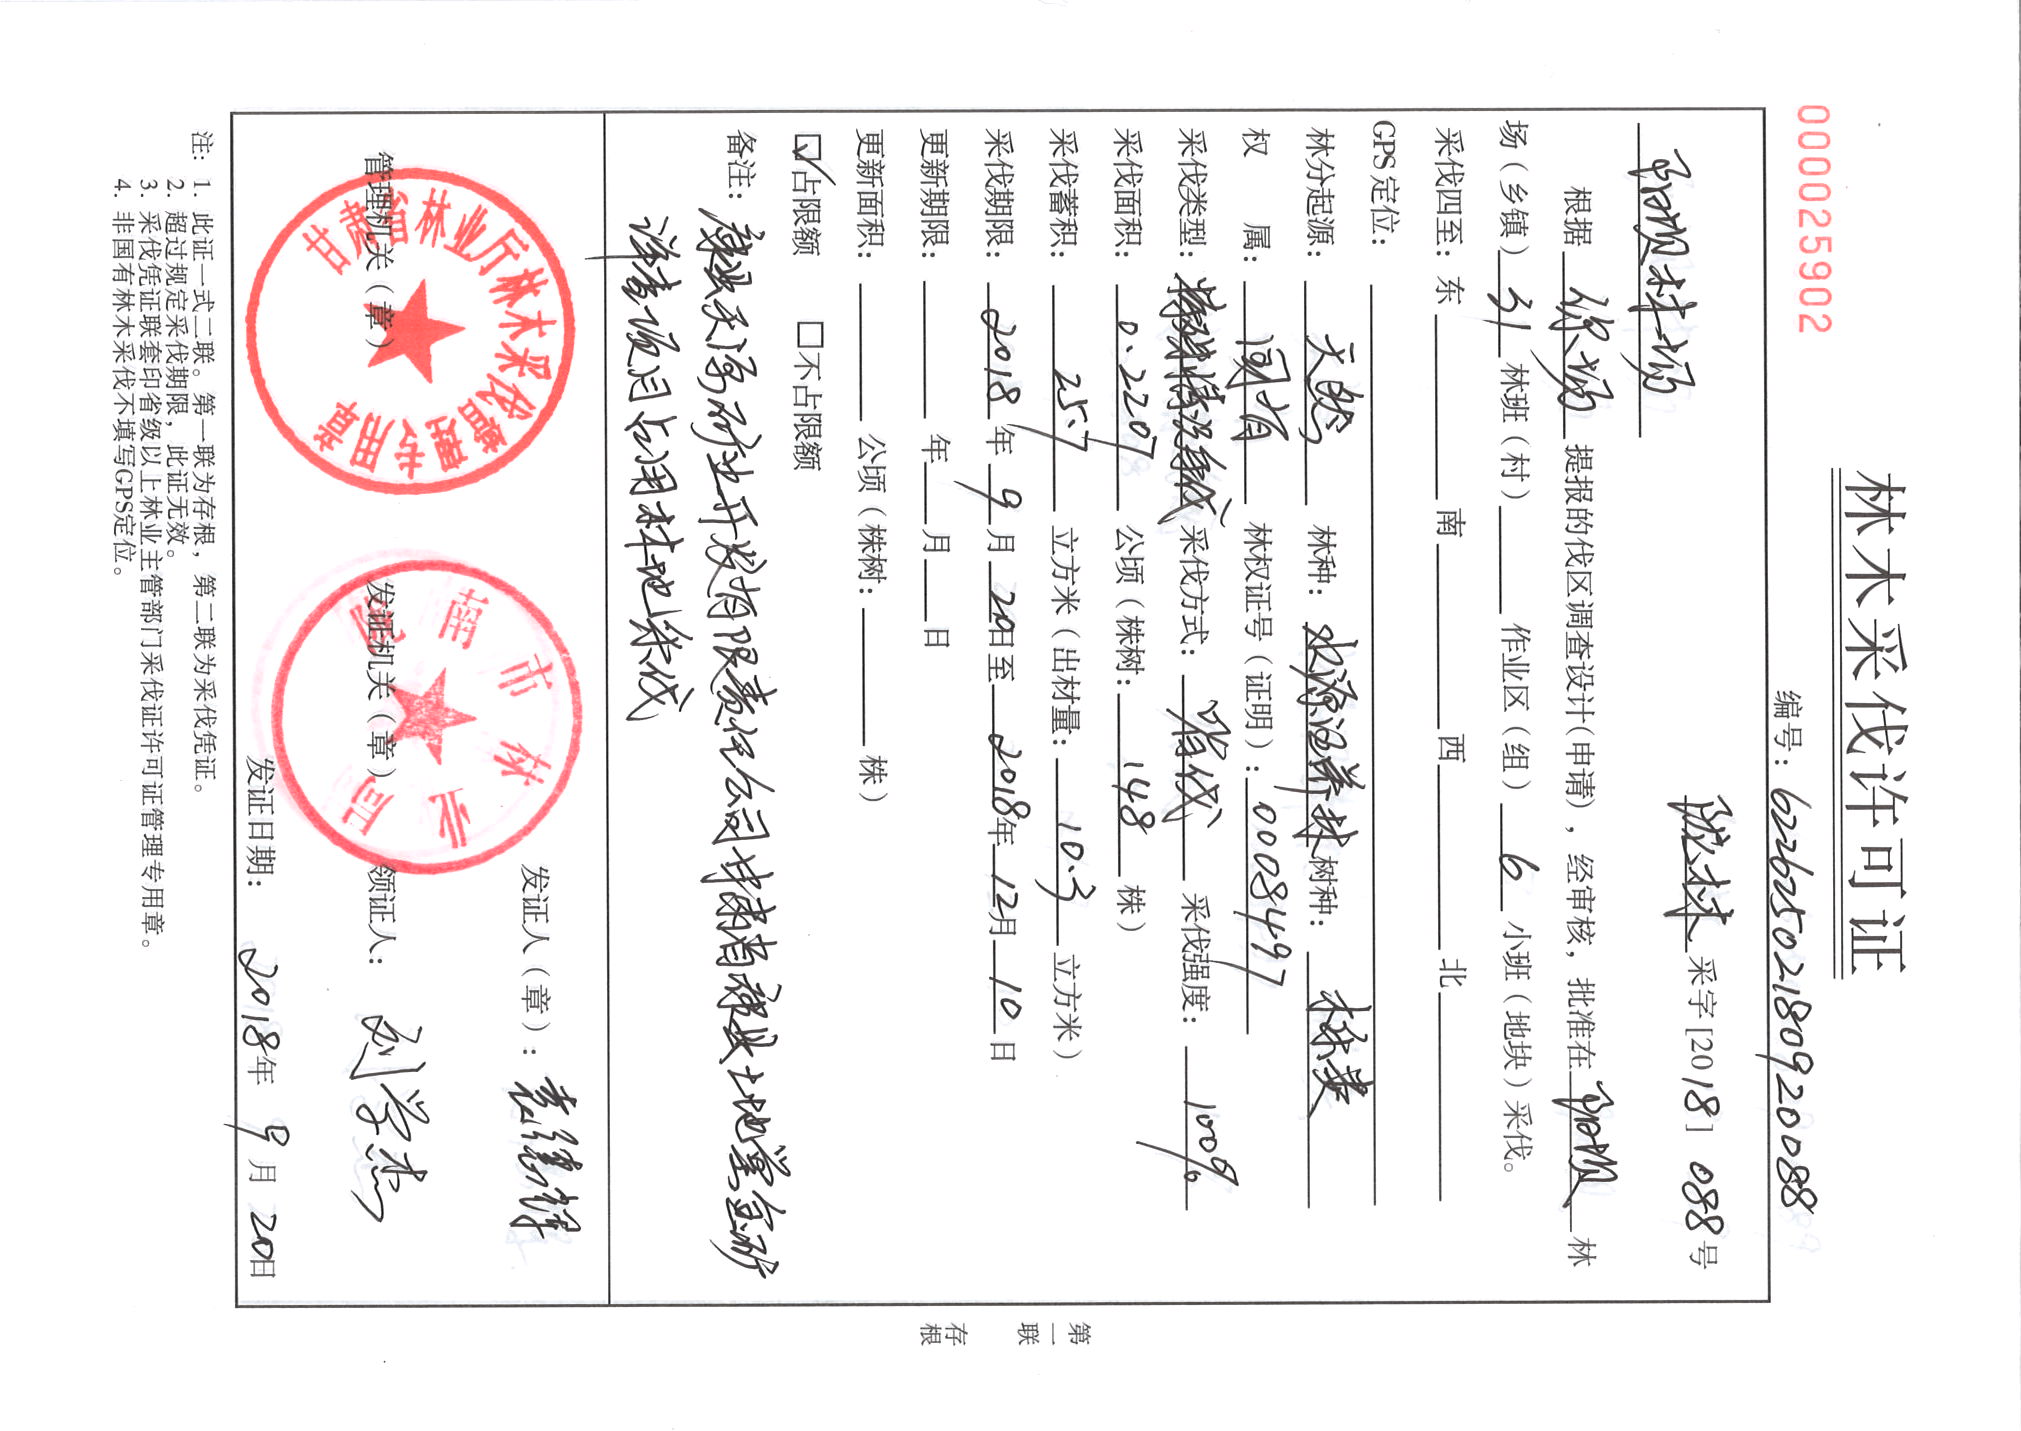 林木采伐许可证
000025902
编号：62262502180920088
陇林 采字[2018] 088号
阳坝林场
根据 你场 提报的伐区调查设计(申请)，经审核，批准在 阳坝 林
场（乡镇） 31 林班（村） 作业区（组） 6 小班（地块）采伐。
采伐四至：东 南 西 北
GPS定位：
林分起源： 天然 林种：水源涵养林 树种： 栎类
权 属： 国有 林权证号（证明）：0008497
采伐类型：特殊情况采伐 采伐方式： 皆伐 采伐强度： 100%
采伐面积： 0.2207 公顷（株树： 148 株）
采伐蓄积： 25.7 立方米（出材量： 10.3 立方米）
采伐期限： 2018 年 9 月 20日至 2018年 12月 10 日
更新期限： 年 月 日
更新面积： 公顷（株树： 株）
☑占限额 □不占限额
备注：康县天源矿业开发有限责任公司甘肃省康县土地堂金矿
详查项目占用林地采伐
第一联 存根
甘肃省林业厅林木采伐管理专用章
管理机关（章）
陇南市林业局
发证机关（章）
发证人（章）：袁德辉
领证人： 刘学杰
发证日期： 2018年 9 月 20日
注：1. 此证一式二联。第一联为存根，第二联为采伐凭证。
2. 超过规定采伐期限，此证无效。
3. 采伐凭证联套印省级以上林业主管部门采伐证许可证管理专用章。
4. 非国有林木采伐不填写GPS定位。